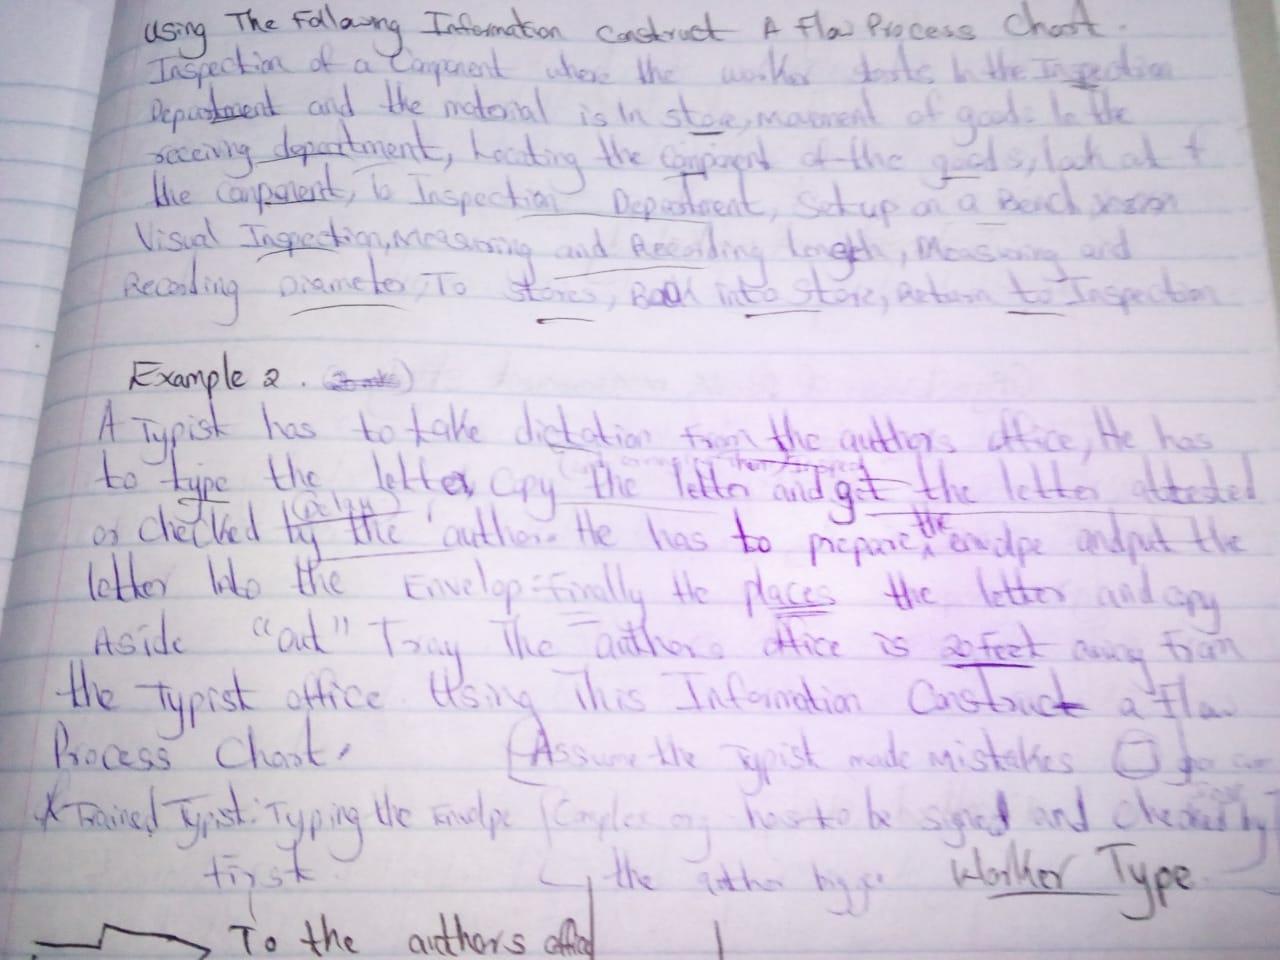 Using The Following Information Construct A Flow Process Chart.
Inspection of a Component where the worker starts In the Inspection
Department and the material is In store, movement of goods to the
receiving department, Locating the Component of the goods, look at
the Component, To Inspection Department, Set up on a Bench
Visual Inspection, measuring and Recording length, Measuring and
Recording Diameter, To stores, Book into store, Return to Inspection
Example 2.
A Typist has to take dictation from the authors office, He has
to type the letter, Copy the letter and get the letter attested
or checked by the author. He has to prepare the envelope and put the
letter Into the Envelop. Finally He places the letter and copy
Aside "out" Tray The authors office is 20 feet away from
the typist office. Using This Information Construct a flow
Process Chart. (Assume the typist made mistakes
Trained Typist: Typing the Envelope has to be signed and checked by
first the author
Worker Type
To the authors office